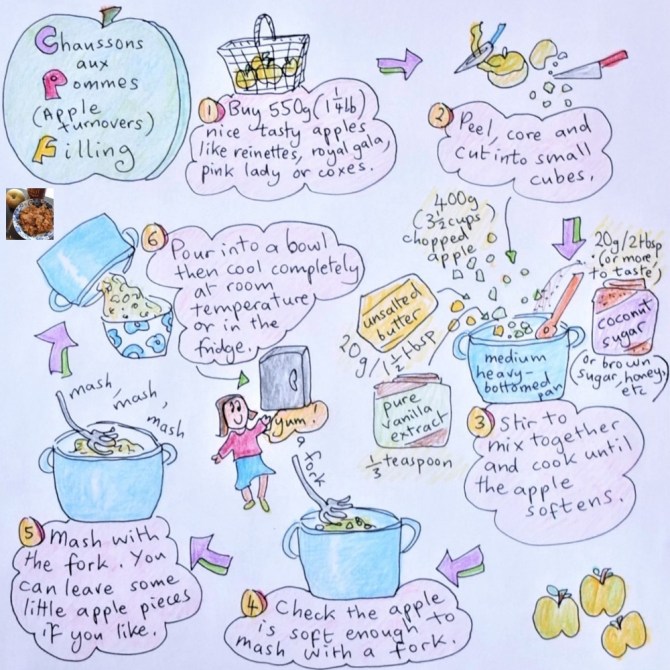 Chaussons
aux
Pommes
(Apple
turnovers)
Filling
1 Buy 550g (1 1/4 lb)
nice tasty apples
like reinettes, royal gala,
pink lady or coxes.
2 Peel, core and
cut into small
cubes.
400g
(3 1/2 cups
chopped
apple
20g/2tbsp
(or more
to taste)
coconut
sugar
(or brown
sugar, honey,
etc
unsalted
butter
20g/1 1/2 tbsp
pure
vanilla
extract
1/3 teaspoon
medium
heavy-
bottomed
pan
3 Stir to
mix together
and cook until
the apple
softens.
a fork
4 Check the apple
is soft enough to
mash with a fork.
mash, mash,
mash
5 Mash with
the fork. You
can leave some
little apple pieces
if you like.
6 Pour into a bowl
then cool completely
at room
temperature
or in the
fridge.
Yum!